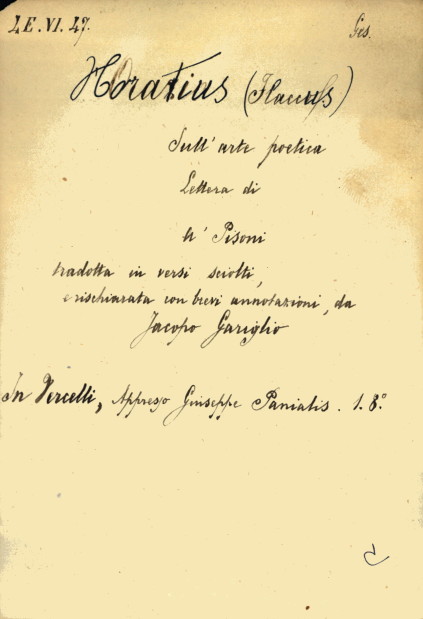 4E.VI.47.
Ges.
Horatius (Flaccus)
Sull'arte poetica
Lettera di
A' Pisoni
tradotta in versi sciolti,
e rischiarata con brevi annotazioni, da
Jacopo Gariglio
In Vercelli, Appresso Giuseppe Panialis. 1. 8.°